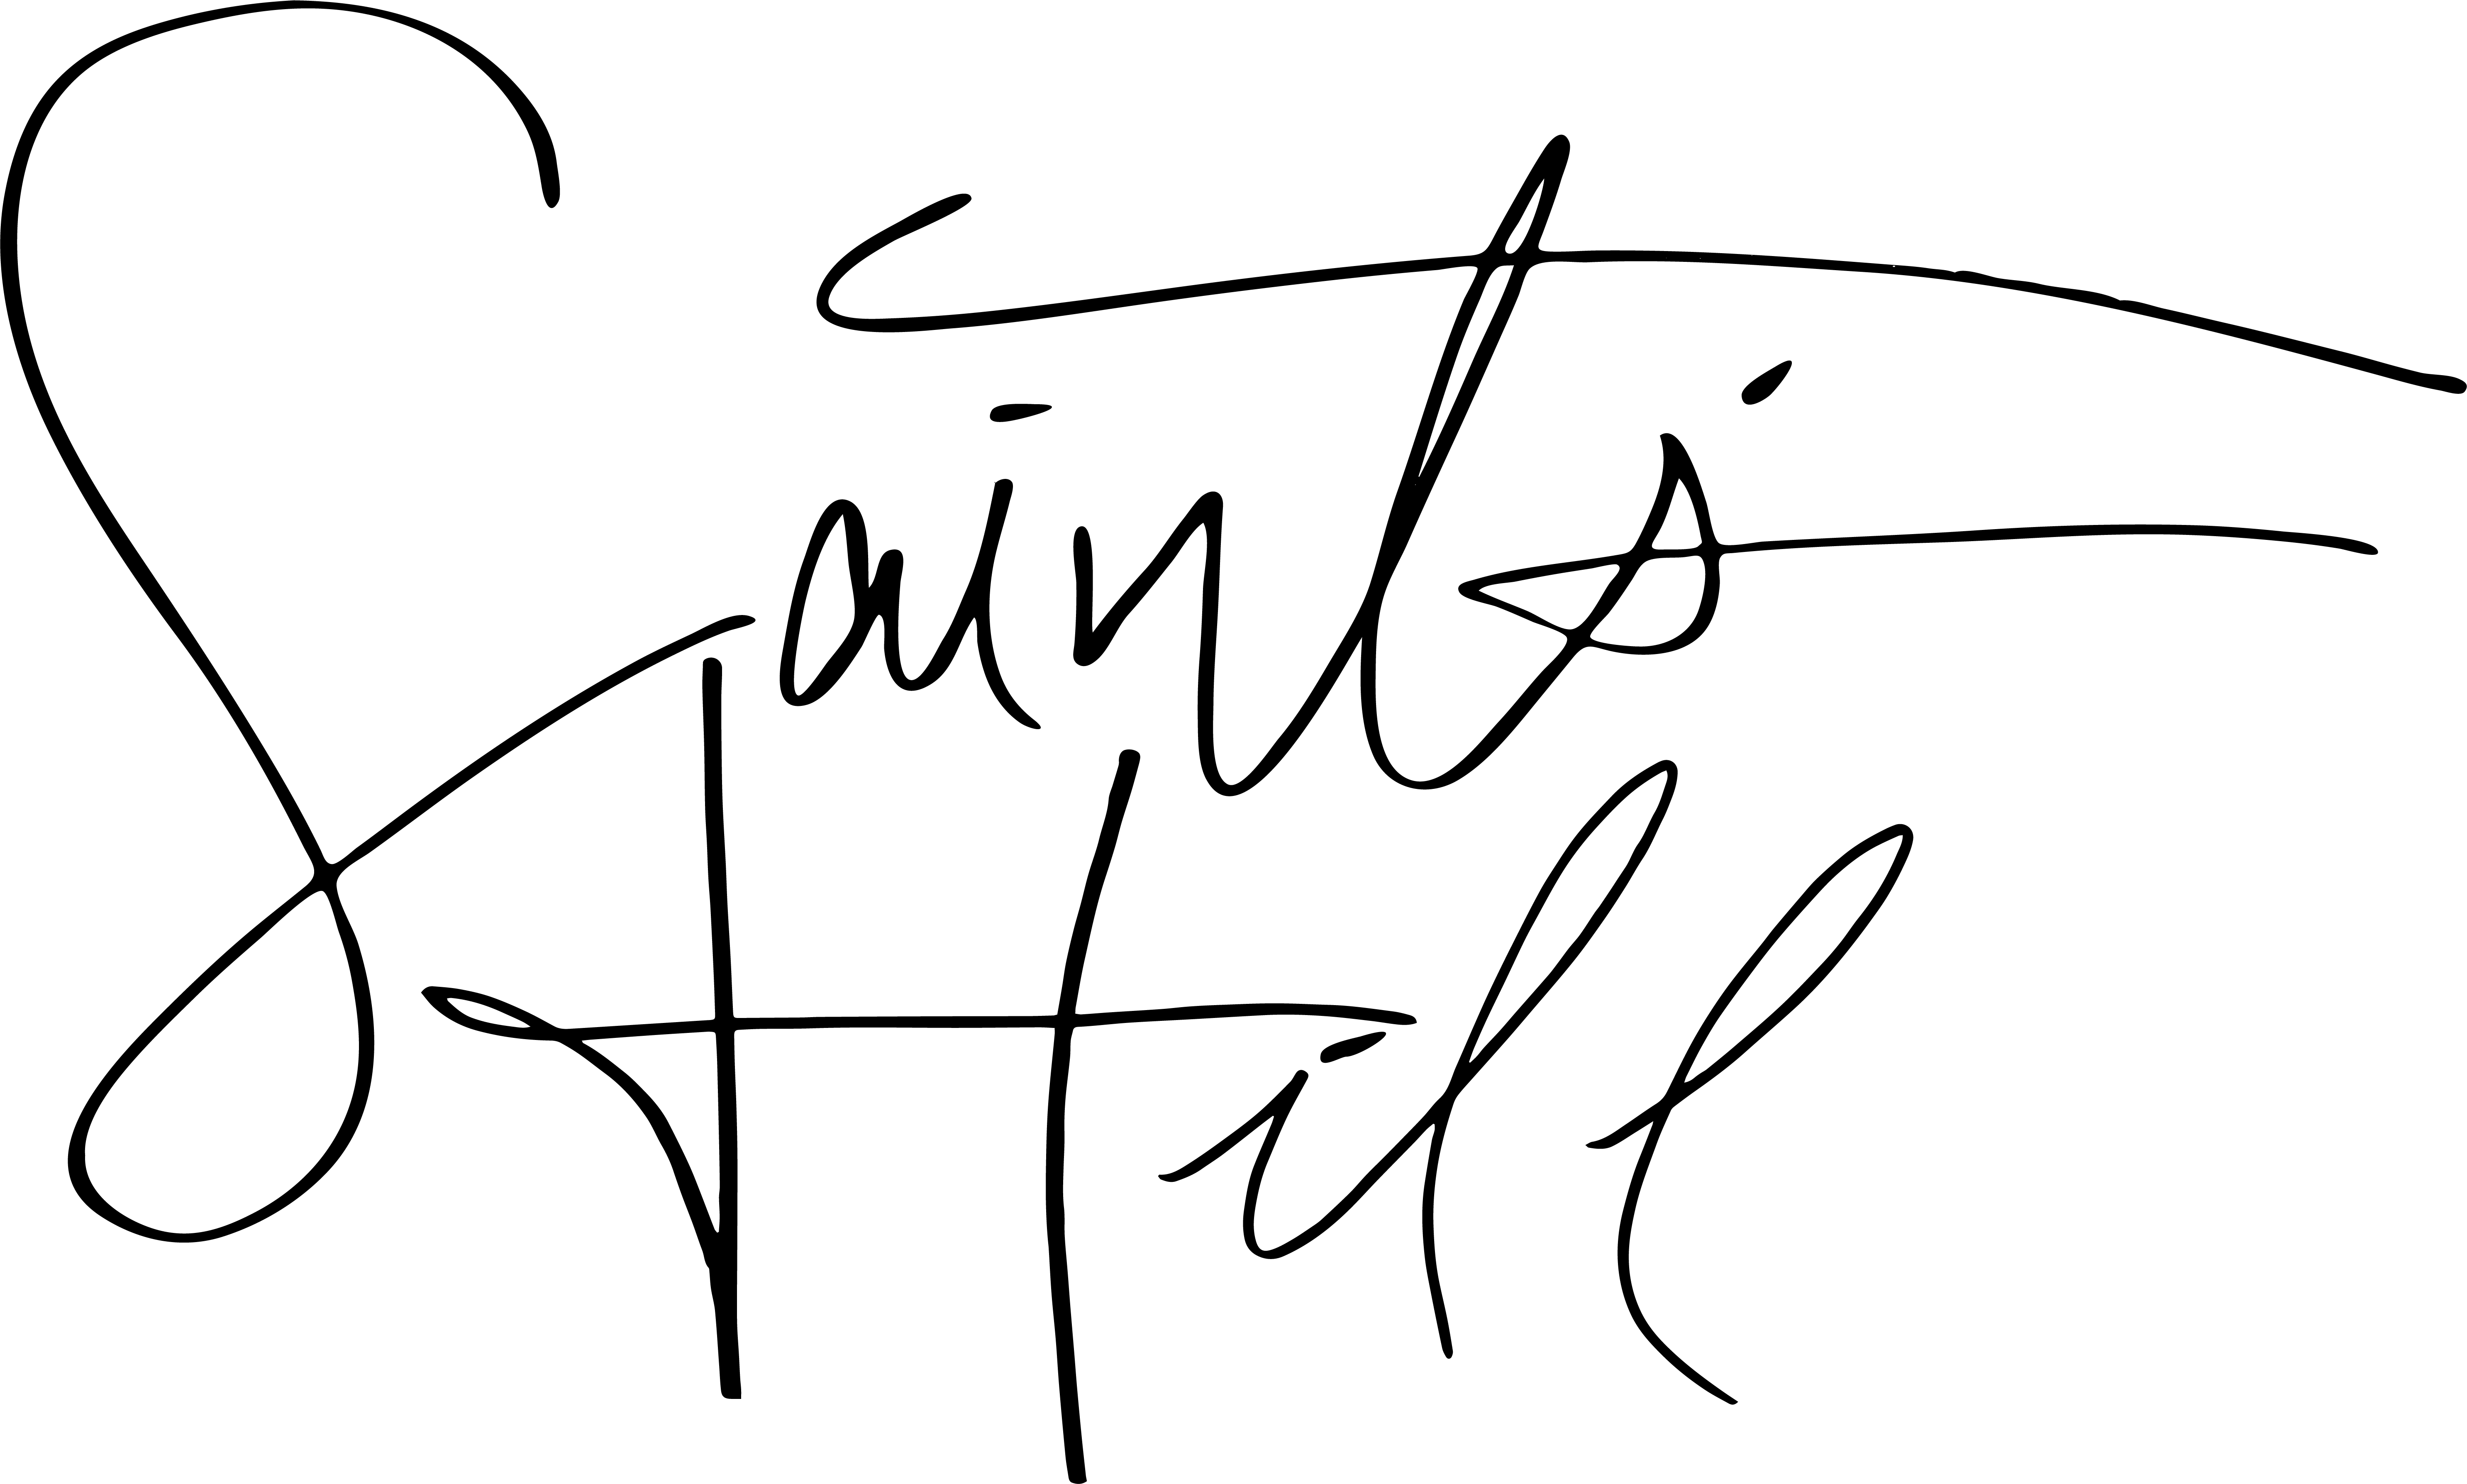 Saints
Hill